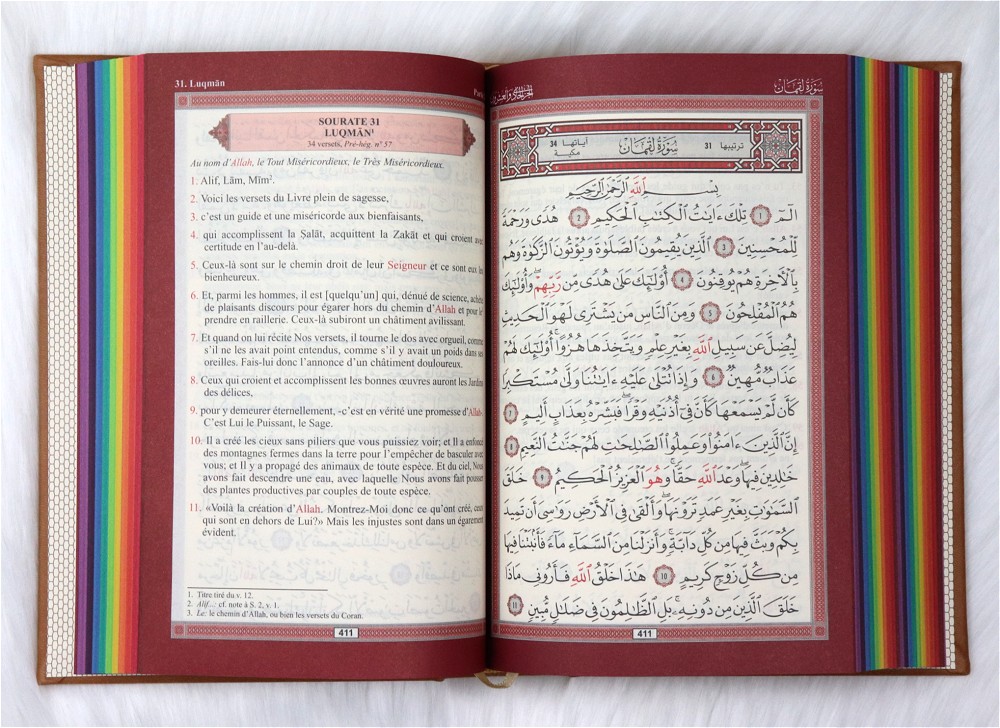 31. Luqmān
SOURATE 31
LUQMĀN¹
34 versets, Pré-hég. n° 57
Au nom d'Allah, le Tout Miséricordieux, le Très Miséricordieux.
1. Alif, Lām, Mīm².
2. Voici les versets du Livre plein de sagesse,
3. c'est un guide et une miséricorde aux bienfaisants,
4. qui accomplissent la Ṣalāt, acquittent la Zakāt et qui croient avec
certitude en l'au-delà.
5. Ceux-là sont sur le chemin droit de leur Seigneur et ce sont eux les
bienheureux.
6. Et, parmi les hommes, il est [quelqu'un] qui, dénué de science, achète
de plaisants discours pour égarer hors du chemin d'Allah et pour le
prendre en raillerie. Ceux-là subiront un châtiment avilissant.
7. Et quand on lui récite Nos versets, il tourne le dos avec orgueil, comme
s'il ne les avait point entendus, comme s'il y avait un poids dans ses
oreilles. Fais-lui donc l'annonce d'un châtiment douloureux.
8. Ceux qui croient et accomplissent les bonnes œuvres auront les Jardins
des délices,
9. pour y demeurer éternellement, -c'est en vérité une promesse d'Allah-.
C'est Lui le Puissant, le Sage.
10. Il a créé les cieux sans piliers que vous puissiez voir; et Il a enfoncé
des montagnes fermes dans la terre pour l'empêcher de basculer avec
vous; et Il y a propagé des animaux de toute espèce. Et du ciel, Nous
avons fait descendre une eau, avec laquelle Nous avons fait pousser
des plantes productives par couples de toute espèce.
11. «Voilà la création d'Allah. Montrez-Moi donc ce qu'ont créé, ceux
qui sont en dehors de Lui?» Mais les injustes sont dans un égarement
évident.
1. Titre tiré du v. 12.
2. Alif...: cf. note à S. 2, v. 1.
3. Le: le chemin d'Allah, ou bien les versets du Coran.
411
الجزء الحادي والعشرون
سورة لقمان
ترتيبها 31
سورة لقمان
آياتها 34
مكية
بِسْمِ اللَّهِ الرَّحْمَٰنِ الرَّحِيمِ
الٓمٓ 1 تِلْكَ ءَايَٰتُ الْكِتَٰبِ الْحَكِيمِ 2 هُدًى وَرَحْمَةً
لِّلْمُحْسِنِينَ 3 الَّذِينَ يُقِيمُونَ الصَّلَوٰةَ وَيُؤْتُونَ الزَّكَوٰةَ وَهُم
بِالْأَخِرَةِ هُمْ يُوقِنُونَ 4 أُوْلَٰٓئِكَ عَلَىٰ هُدًى مِّن رَّبِّهِمْ ۖ وَأُوْلَٰٓئِكَ
هُمُ الْمُفْلِحُونَ 5 وَمِنَ النَّاسِ مَن يَشْتَرِى لَهْوَ الْحَدِيثِ
لِيُضِلَّ عَن سَبِيلِ اللَّهِ بِغَيْرِ عِلْمٍ وَيَتَّخِذَهَا هُزُوًا ۚ أُوْلَٰٓئِكَ لَهُمْ
عَذَابٌ مُّهِينٌ 6 وَإِذَا تُتْلَىٰ عَلَيْهِ ءَايَٰتُنَا وَلَّىٰ مُسْتَكْبِرًا
كَأَن لَّمْ يَسْمَعْهَا كَأَنَّ فِىٓ أُذُنَيْهِ وَقْرًا ۖ فَبَشِّرْهُ بِعَذَابٍ أَلِيمٍ 7
إِنَّ الَّذِينَ ءَامَنُوا وَعَمِلُوا الصَّٰلِحَٰتِ لَهُمْ جَنَّٰتُ النَّعِيمِ 8
خَٰلِدِينَ فِيهَا ۖ وَعْدَ اللَّهِ حَقًّا ۚ وَهُوَ الْعَزِيزُ الْحَكِيمُ 9 خَلَقَ
السَّمَٰوَٰتِ بِغَيْرِ عَمَدٍ تَرَوْنَهَا ۖ وَأَلْقَىٰ فِى الْأَرْضِ رَوَٰسِىَ أَن تَمِيدَ
بِكُمْ وَبَثَّ فِيهَا مِن كُلِّ دَآبَّةٍ ۚ وَأَنزَلْنَا مِنَ السَّمَآءِ مَآءً فَأَنۢبَتْنَا فِيهَا
مِن كُلِّ زَوْجٍ كَرِيمٍ 10 هَٰذَا خَلْقُ اللَّهِ فَأَرُونِى مَاذَا
خَلَقَ الَّذِينَ مِن دُونِهِۦ ۚ بَلِ الظَّٰلِمُونَ فِى ضَلَٰلٍ مُّبِينٍ 11
411